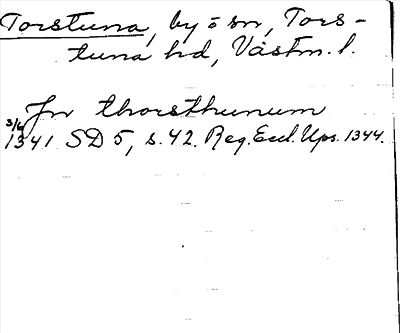 Torstuna, by o sn, Tors-
tuna hd, Västm. l.
Jn thorsthunum
3/6
1341 SD 5, s. 42. Reg. Eccl. Ups. 1344.